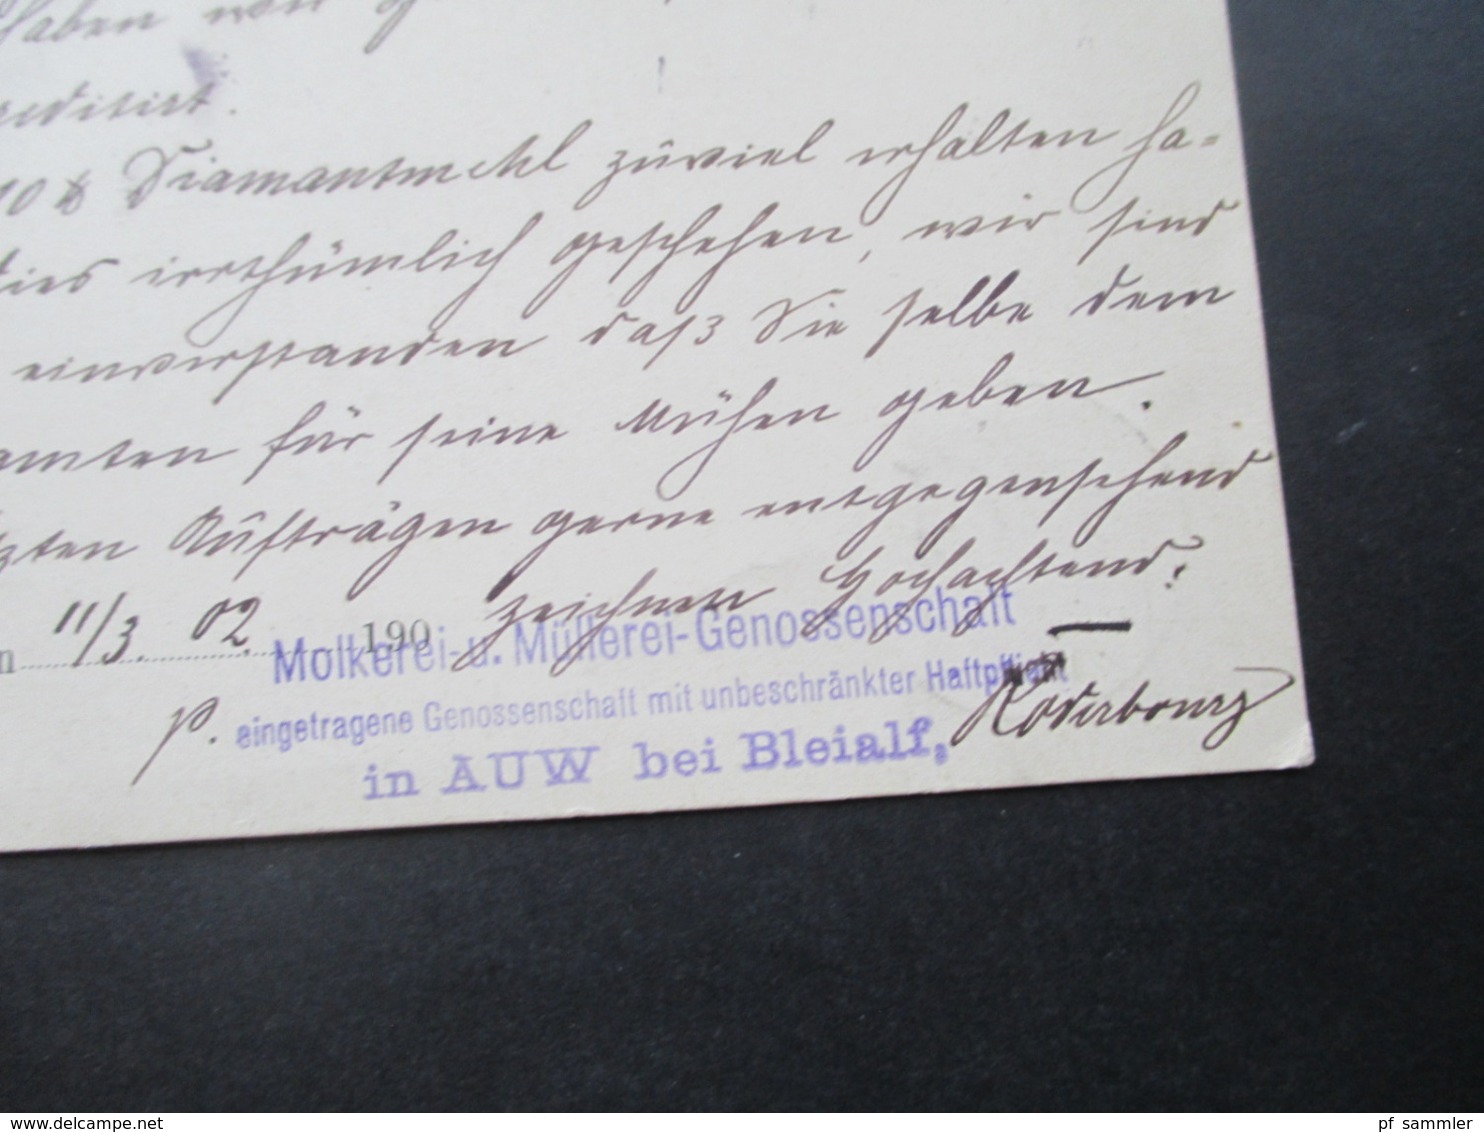 haben wir
creditirt.
10 ℔ Diamantmehl zuviel erhalten ha-
dies irrthümlich geschehen, wir sind
einverstanden daß Sie selbe dem
amten für seine Mühen geben.
Aufträgen gerne entgegensehend
zeichnen Hochachtend.
11/3. 02. 190
Molkerei- u. Müllerei-Genossenschaft
eingetragene Genossenschaft mit unbeschränkter Haftpflicht
in AUW bei Bleialf,
p. Roderbourg
www.delcampe.net
pf_sammler